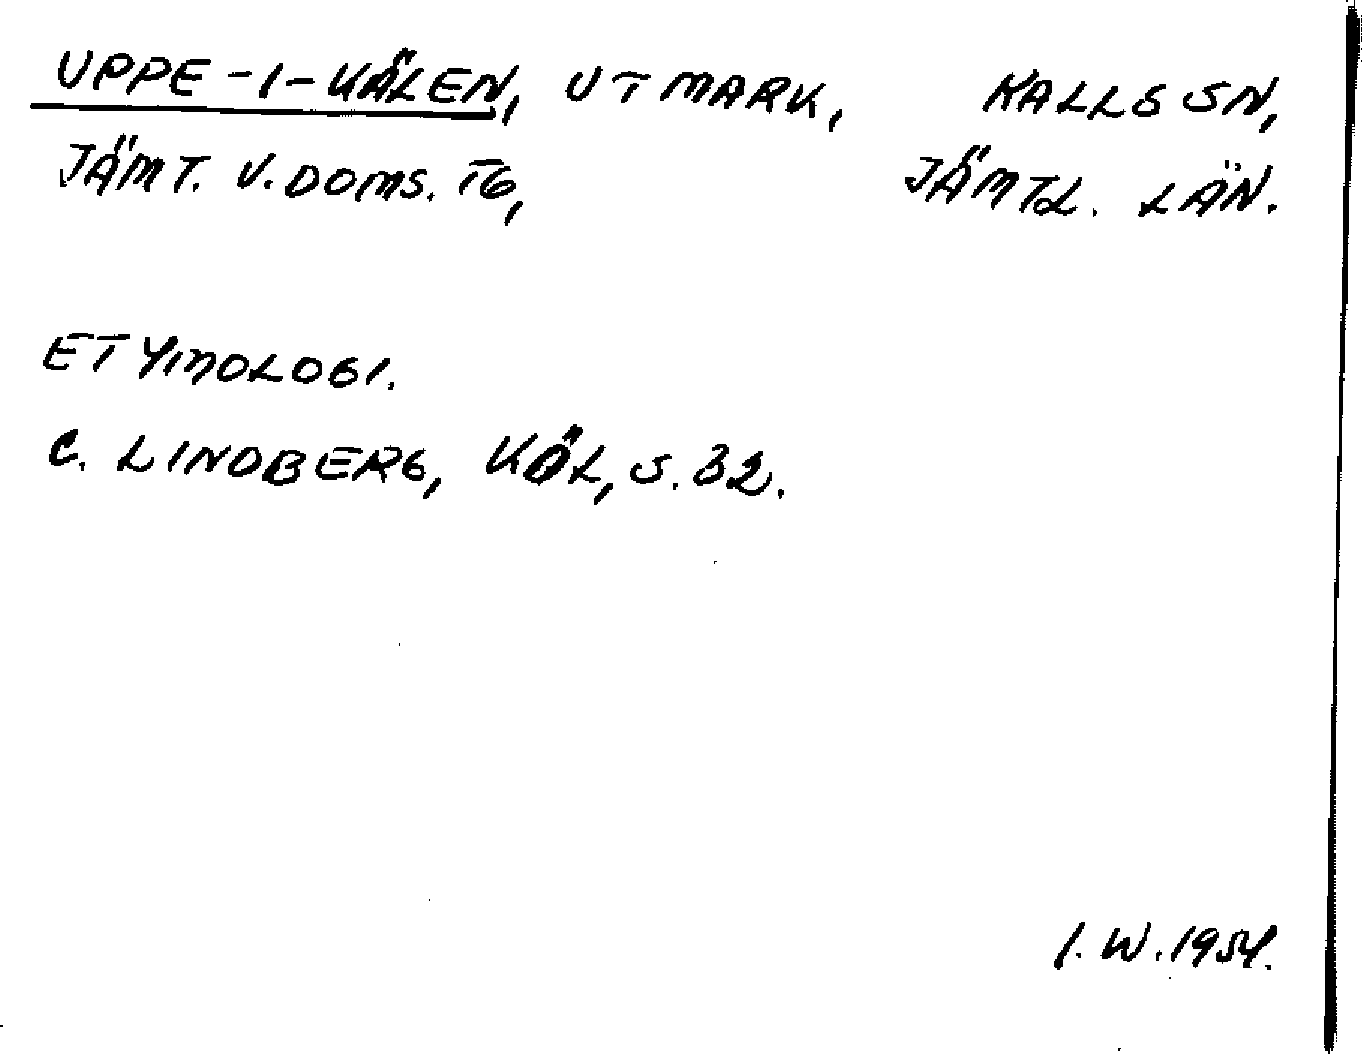 UPPE-I-KÄLEN, UTMARK, KALLS SN,
JÄMT. V. DOMS. TG, JÄMTL. LÄN.
ETYMOLOGI.
C. LINDBERG, KÖL, S. 32.
I. W. 1954.